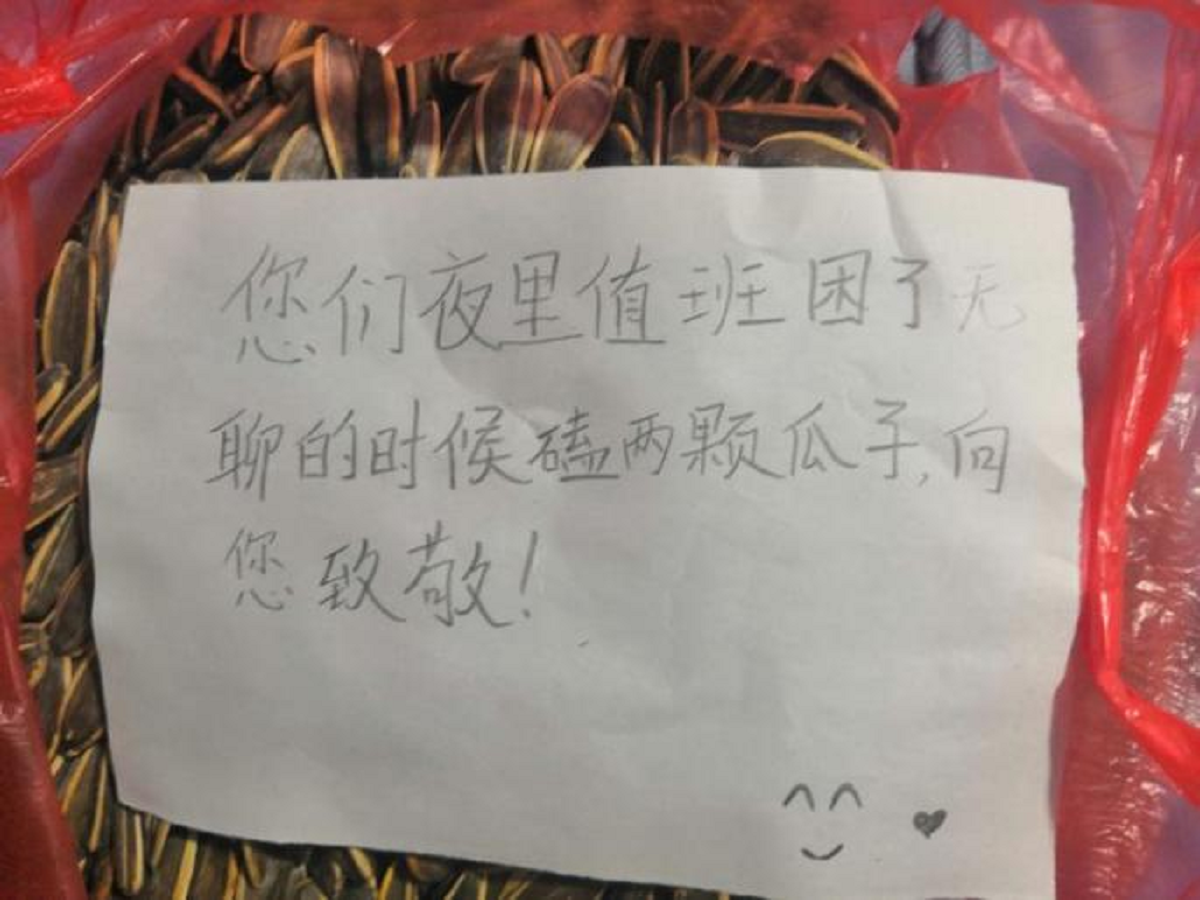 您们夜里值班困了无
聊的时候磕两颗瓜子,向
您致敬!